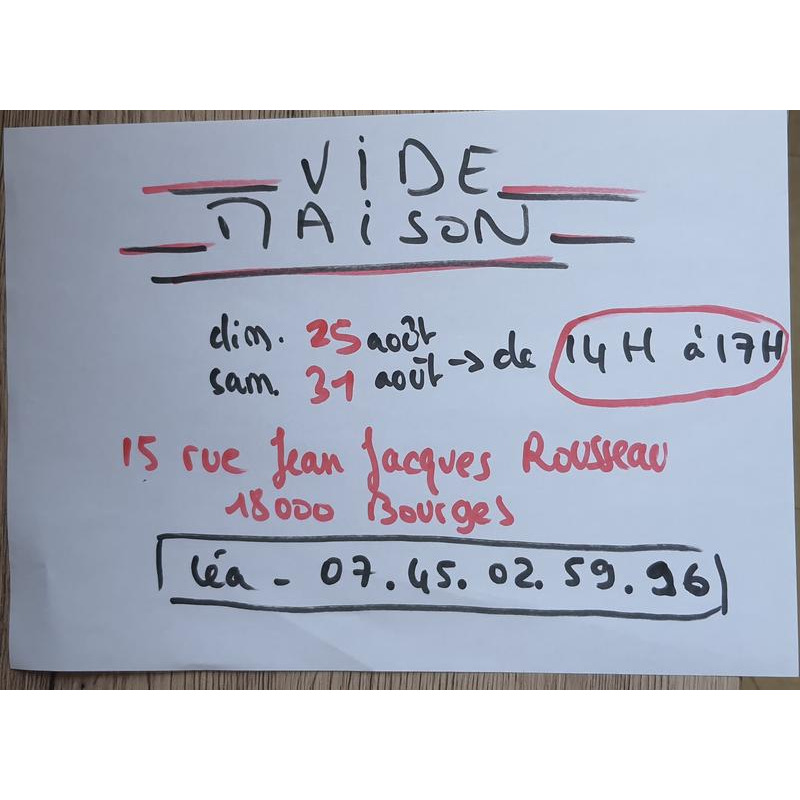 ViDE
MAiSON
dim. 25 août
sam. 31 août → de 14H à 17H
15 rue Jean Jacques Rousseau
18000 Bourges
Léa - 07.45.02.59.96